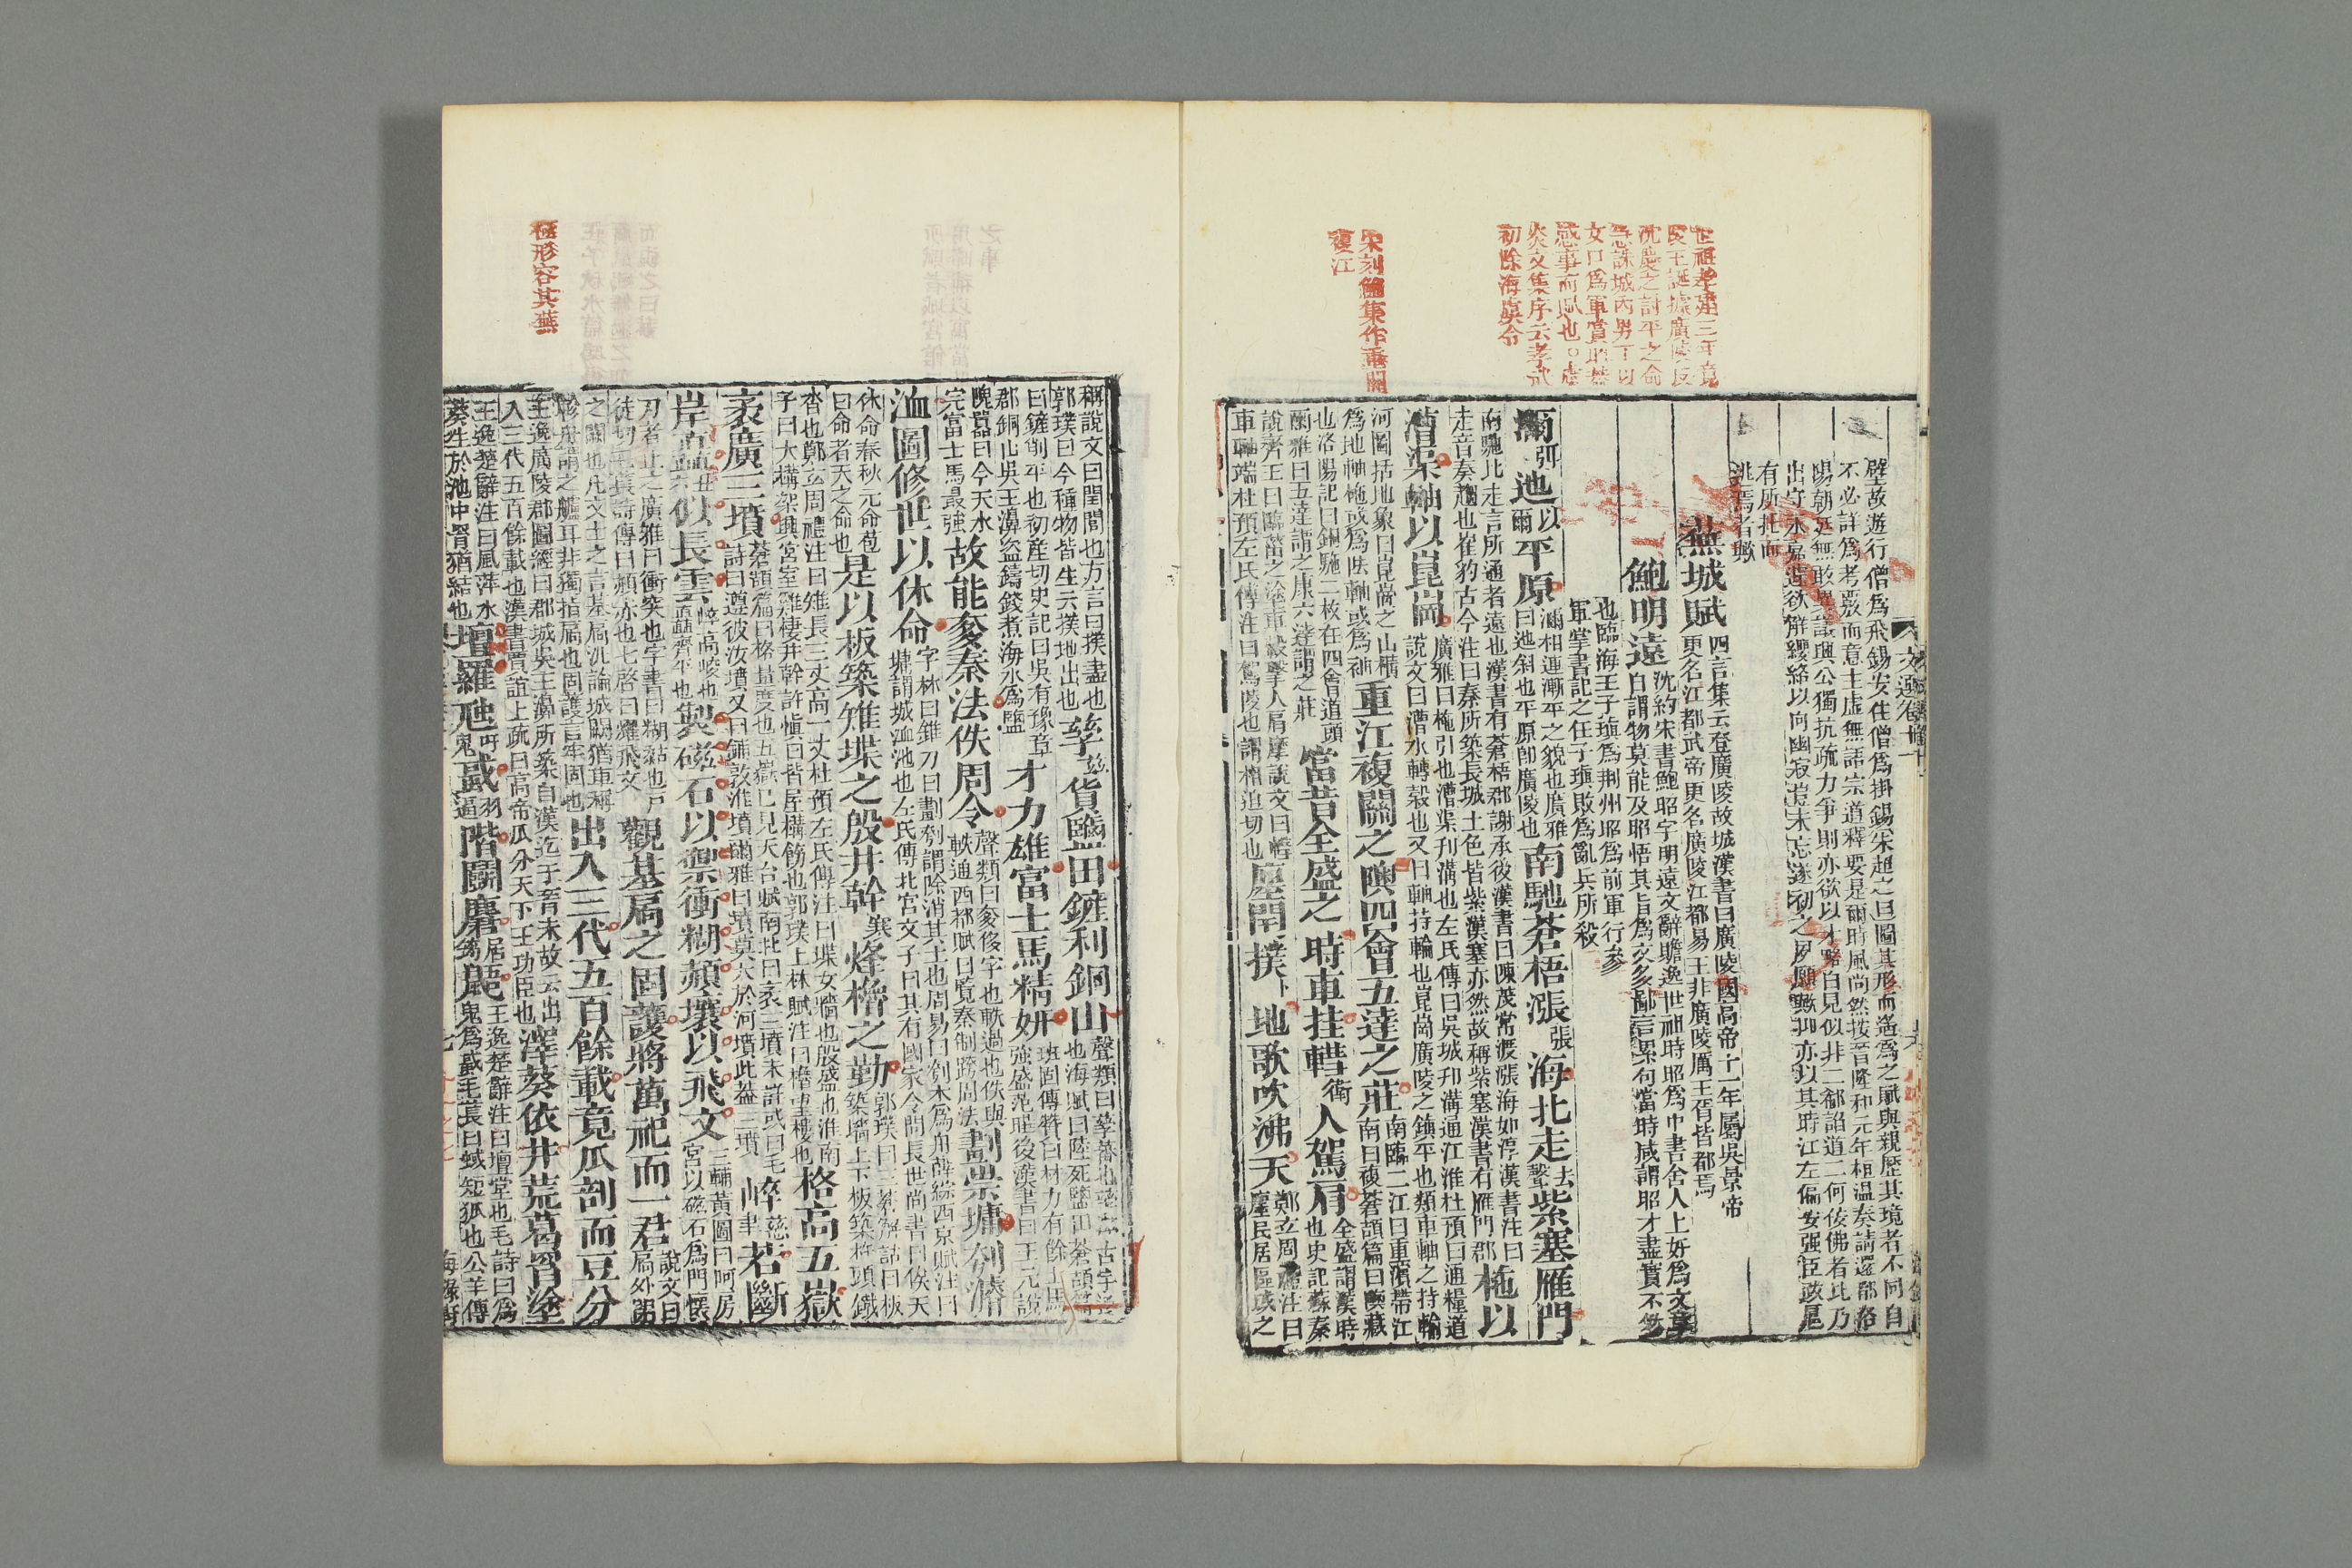 世祖孝建三年竟
陵王誕據廣陵反
沈慶之討平之命
悉誅城內男丁以
女口爲軍賞昭蓋
感事而賦也。虞
炎文集序云孝武
初除海虞令
宋刻鮑集作重關
複江
壁故遊行僧爲飛錫安住僧爲掛錫
不必詳爲考覈而意主虛無語宗道釋要是爾時風尚然按晉隆和元年桓温奏請還都洛
陽朝廷無敢異議興公獨抗疏力爭則亦欲以才略自見似非二都諂道二何佞佛者比乃
出守永嘉遊欲解纓絡以向幽寂豈未忘遂初之夙願歟抑亦以其時江左偏安强臣跋扈
有所托而
逃焉者歟
蕪城賦四言集云登廣陵故城漢書曰廣陵國高帝十一年屬吳景帝
更名江都武帝更名廣陵江都易王非廣陵厲王胥皆都焉
鮑明遠沈約宋書鮑昭字明遠文辭贍逸世祖時昭爲中書舍人上好爲文章
自謂物莫能及昭悟其旨爲文多鄙言累句當時咸謂昭才盡實不然
也臨海王子瑱爲荆州昭爲前軍行參
軍掌書記之任子瑱敗爲亂兵所殺
瀰弭池以爾平原瀰相連漸平之貌也廣雅
曰迆斜也平原卽廣陵也南馳蒼梧漲張海北走去聲紫塞雁門
南馳北走言所通者遠也漢書有蒼梧郡謝承後漢書曰陳茂常渡漲海如淳漢書注曰
走音奏趨也崔豹古今注曰秦所築長城土色皆紫漢塞亦然故稱紫塞漢書有雁門郡柂以
漕渠軸以崑崗廣雅曰柂引也漕渠邗溝也左氏傳曰吳城邗溝通江淮杜預曰通糧道
說文曰漕水轉轂也又曰軸持輪也崑崗廣陵之鎮平也類車軸之持輪
河圖括地象曰崑崙之山橫
爲地軸柂或爲阹軸或爲袖重江複關之隩四會五達之莊南臨二江曰重濱帶江
南曰複蒼頡篇曰隩藏
也洛陽記曰銅駞二枚在四會道頭
爾雅曰五達謂之康六達謂之莊當昔全盛之時車挂轊衛人駕肩全盛謂漢時
也史記蘇秦
說齊王曰臨菑之塗車轂擊人肩摩說文曰轊
車軸端杜預左氏傳注曰駕陵也謂相迫切也廛閈撲卜地歌吹沸天鄭玄周禮注曰
廛民居區域之
極形容其蕪
稱說文曰閈閭也方言曰撲盡也
郭璞曰今種物皆生云撲地出也孳兹貨鹽田鏟利銅山
曰鏟削平也初產切史記曰吳有豫章
郡銅山吳王濞盜鑄錢煮海水爲鹽才力雄富士馬精姸班固傳贊曰材力有餘士馬
強盛范曄後漢書曰王元說
隗囂曰今天水
完富士馬最强故能奓秦法佚周令聲類曰奓侈字也軼過也佚與
軼通西都賦曰覽秦制跨周法劃崇墉刳濬
洫圖修世以休命字林曰錐刀曰劃刳謂除消其土也周易曰刳木爲舟薛綜西京賦注曰
墉謂城洫池也左氏傳北宮文子曰其有國家令聞長世尚書曰俟天
休命春秋元命苞
曰命者天之命也是以板築雉堞之殷井幹寒烽櫓之勤郭璞曰三蒼解詁曰板
築墻上下板築杵頭鐵
沓也鄭玄周禮注曰雉長三丈高一丈杜預左氏傳注曰堞女牆也殷盛也淮南
子曰大構架興宮室雞棲井幹許愼曰皆屋構飾也郭璞上林賦注曰櫓望樓也格高五嶽
袤廣三墳蒼頡篇曰格量度也五嶽已見天台賦南北曰袤三墳未詳或曰毛
詩曰遵彼汝墳又曰鋪敦淮墳爾雅曰墳莫大於河墳此蓋三墳崒慈聿若斷
岸矗丑六似長雲崒高峻也
直矗齊平也製磁石以禦衝糊赬壤以飛文三輔黃圖曰阿房
宮以磁石爲門懷
刃者止之廣雅曰衝突也字書曰糊黏也戸
徒切毛萇詩傳曰赬赤也七啓曰燿飛文觀基扃之固護將萬祀而一君說文曰
扃外閉
之關也凡文士之言基扃汎論城闕猶車稱
軫舟謂之艫耳非獨指扃也固護言牢固也出入三代五百餘載竟瓜剖而豆分
王逸廣陵郡圖經曰郡城吳王濞所築自漢迄于晉末故云出
入三代五百餘載也漢書賈誼上疏曰高帝瓜分天下王功臣也澤葵依井荒葛罥塗
王逸楚辭注曰風萍水
葵生於池中罥猶結也壇羅虺呼鬼蜮羽逼階鬭麏居筠鼯王逸楚辭注曰壇堂也毛詩曰爲
鬼爲蜮毛萇曰蜮短狐也公羊傳
文選卷十一
海錄軒